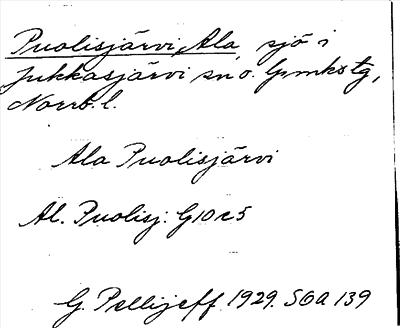 Puolisjärvi, Ala, sjö i
Jukkasjärvi sn o. Gmkstg,
Norrb. l.
Ala Puolisjärvi
Al. Puolisj: G10c5
G. Pellijeff 1929. SOA 139